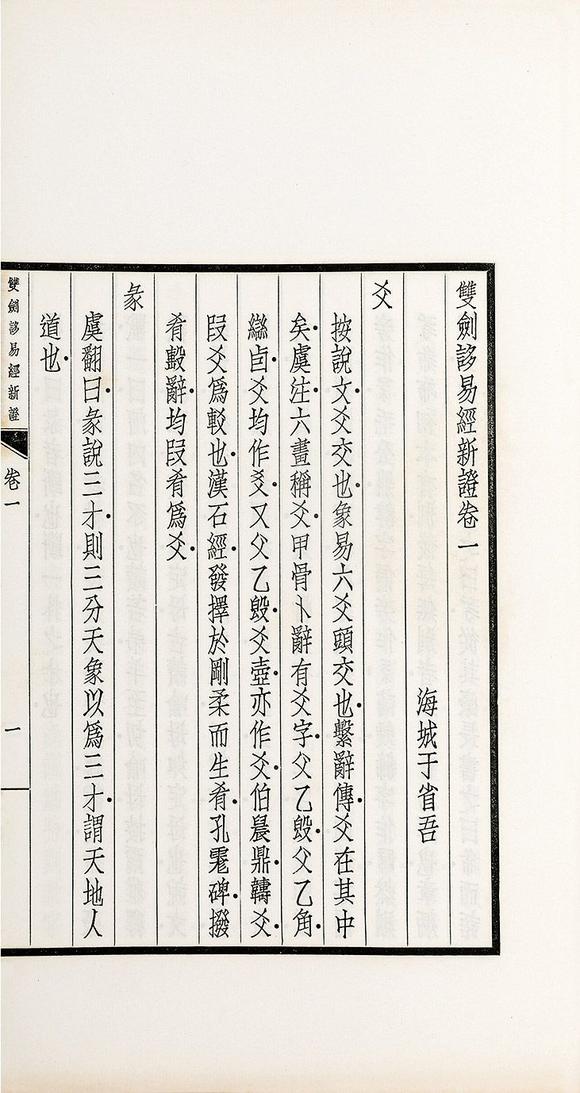 雙劍誃易經新證卷一
海城于省吾
爻
按說文爻交也象易六爻頭交也繫辭傳爻在其中
矣虞注六畫稱爻甲骨卜辭有爻字父乙毀父乙角
爻均作爻又父乙毀爻壺亦作爻伯晨鼎
叚爻爲較也漢石經發揮於剛柔而生肴孔霮碑撥
肴辭均叚肴爲爻
彖
虞翻曰彖說三才則三分天象以爲三才謂天地人
道也
雙劍誃易經新證
卷一
一